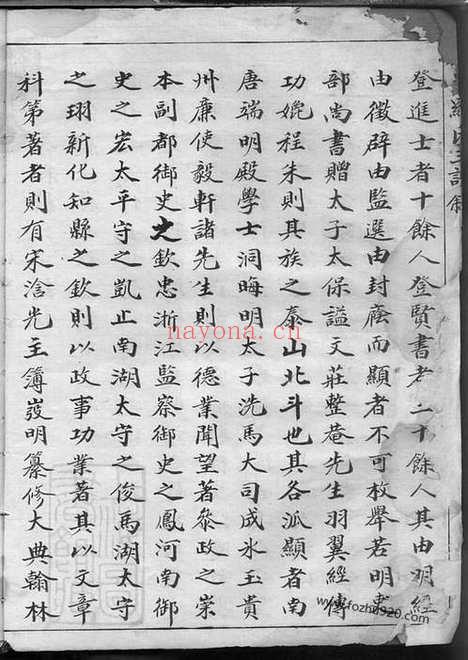 登進士者十餘人登賢書者二十餘人其由明經
由徵辟由監選由封廕而顯者不可枚舉若明吏
部尚書贈太子太保謚文莊整菴先生羽翼經傳
功媲程朱則其族之泰山北斗也其各派顯者南
唐端明殿學士洞晦明太子洗馬大司成氷玉貴
州廉使毅軒諸先生則以德業聞望著叅政之崇
本副都御史之欽忠浙江監察御史之鳳河南御
史之宏太平守之凱止南湖太守之俊馬湖太守
之珝新化知縣之欽則以政事功業著其以文章
科第著者則有宋淦光主簿崴明纂修大典翰林
nayona.cn
www.fozhu920.com